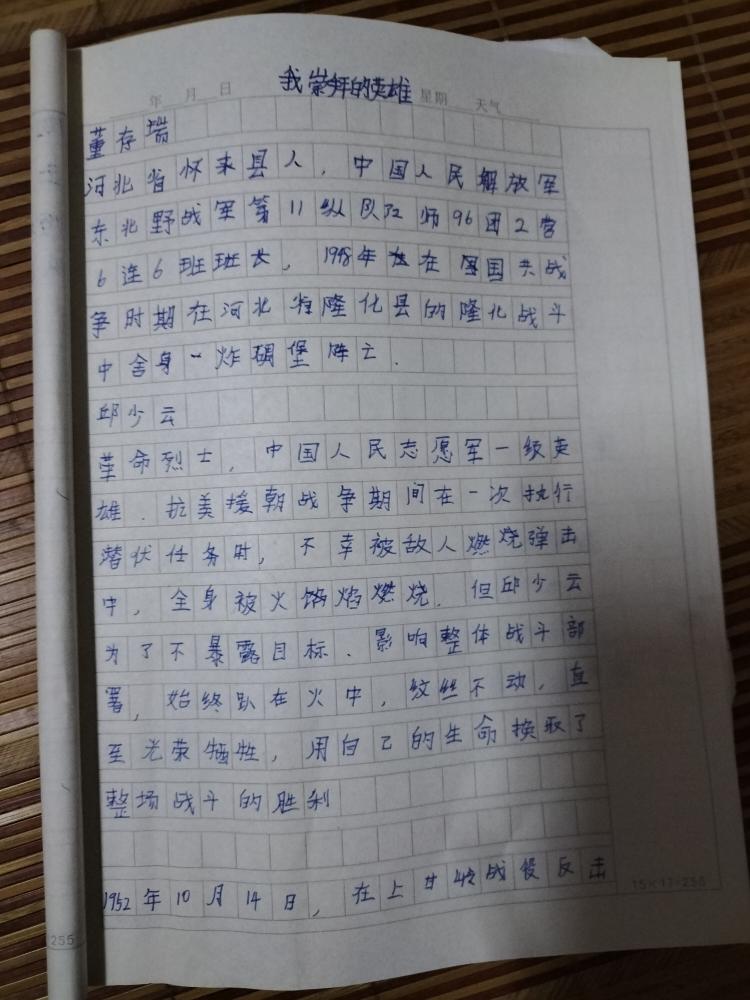 我崇拜的英雄
年 月 日 星期 天气
董存瑞
河北省怀来县人，中国人民解放军
东北野战军第11纵队32师96团2营
6连6班班长，1948年在国共战
争时期在河北省隆化县的隆化战斗
中舍身炸碉堡阵亡.
邱少云
革命烈士，中国人民志愿军一级英
雄.抗美援朝战争期间在一次执行
潜伏任务时，不幸被敌人燃烧弹击
中，全身被火焰燃烧.但邱少云
为了不暴露目标、影响整体战斗部
署，始终趴在火中，纹丝不动，直
至光荣牺牲，用自己的生命换取了
整场战斗的胜利
1952年10月14日，在上甘岭战役反击
15×17=255
255